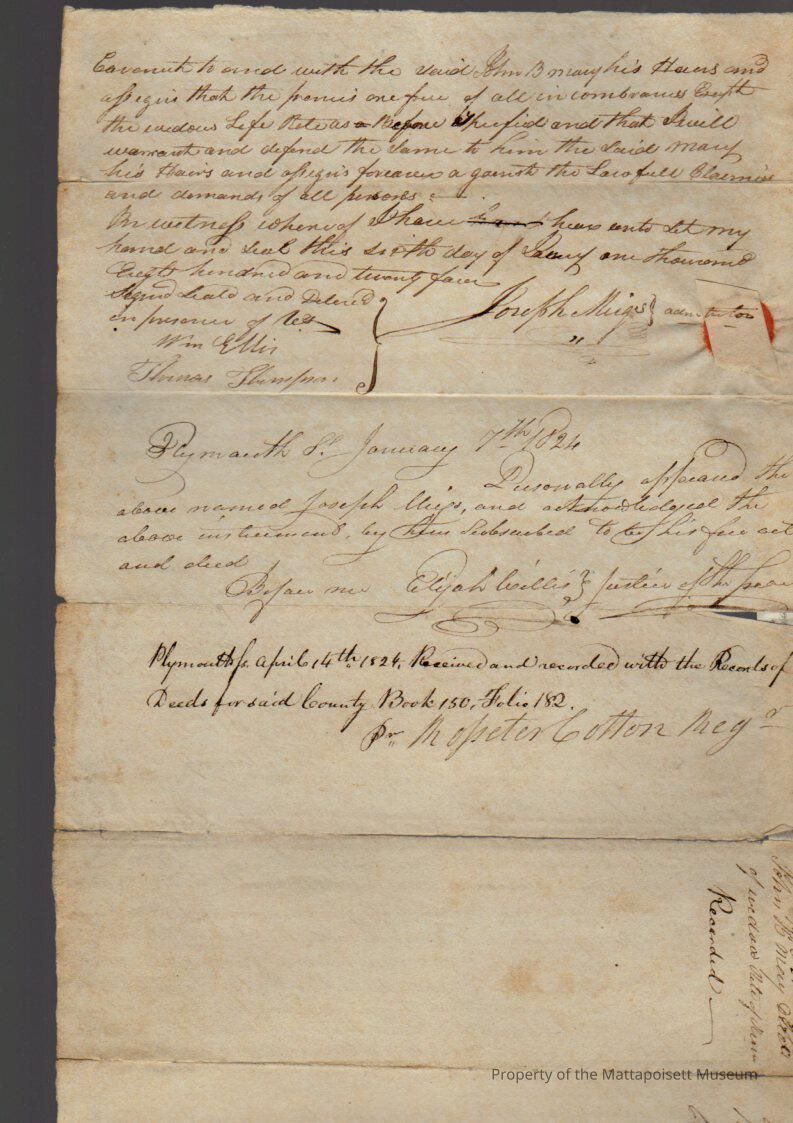 Covenut to and with the said John B mary his Hairs and
assegns that the premis are free of all in combrances Exsept
the wedows Life as Before and that I will
warrant and defend the Same to him the Said Mary
his Hairs and assegns foreaver a ganst the Lawfull Claimes
and demands of all persons
In witness where of I have here unto Set my
hand and Seal this sixth day of one thousand
Eight hundred and twenty four
Signd Seald and
in presence of us
Joseph Meigs
Wm Ellis
Thomas Thompson
Plymouth Ss January 7th 1824
Personally appeared the
above named Joseph Migs, and acknowledged the
above instrument, by him Subscribed to be his free act
and deed
Before me Elijah Willis Justice of the peace
Plymouth Ss. April 14th 1824. Received and recorded with the Records of
Deeds for said County Book 150, Folio 182.
Pr Rosseter Cotton Regr
John B Mary
of wedow
Recorded
Property of the Mattapoisett Museum